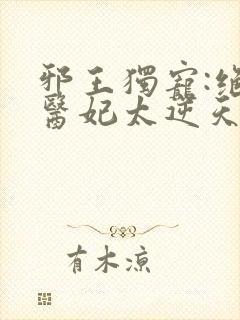 邪王獨寵:絕
醫妃太逆天
有木涼